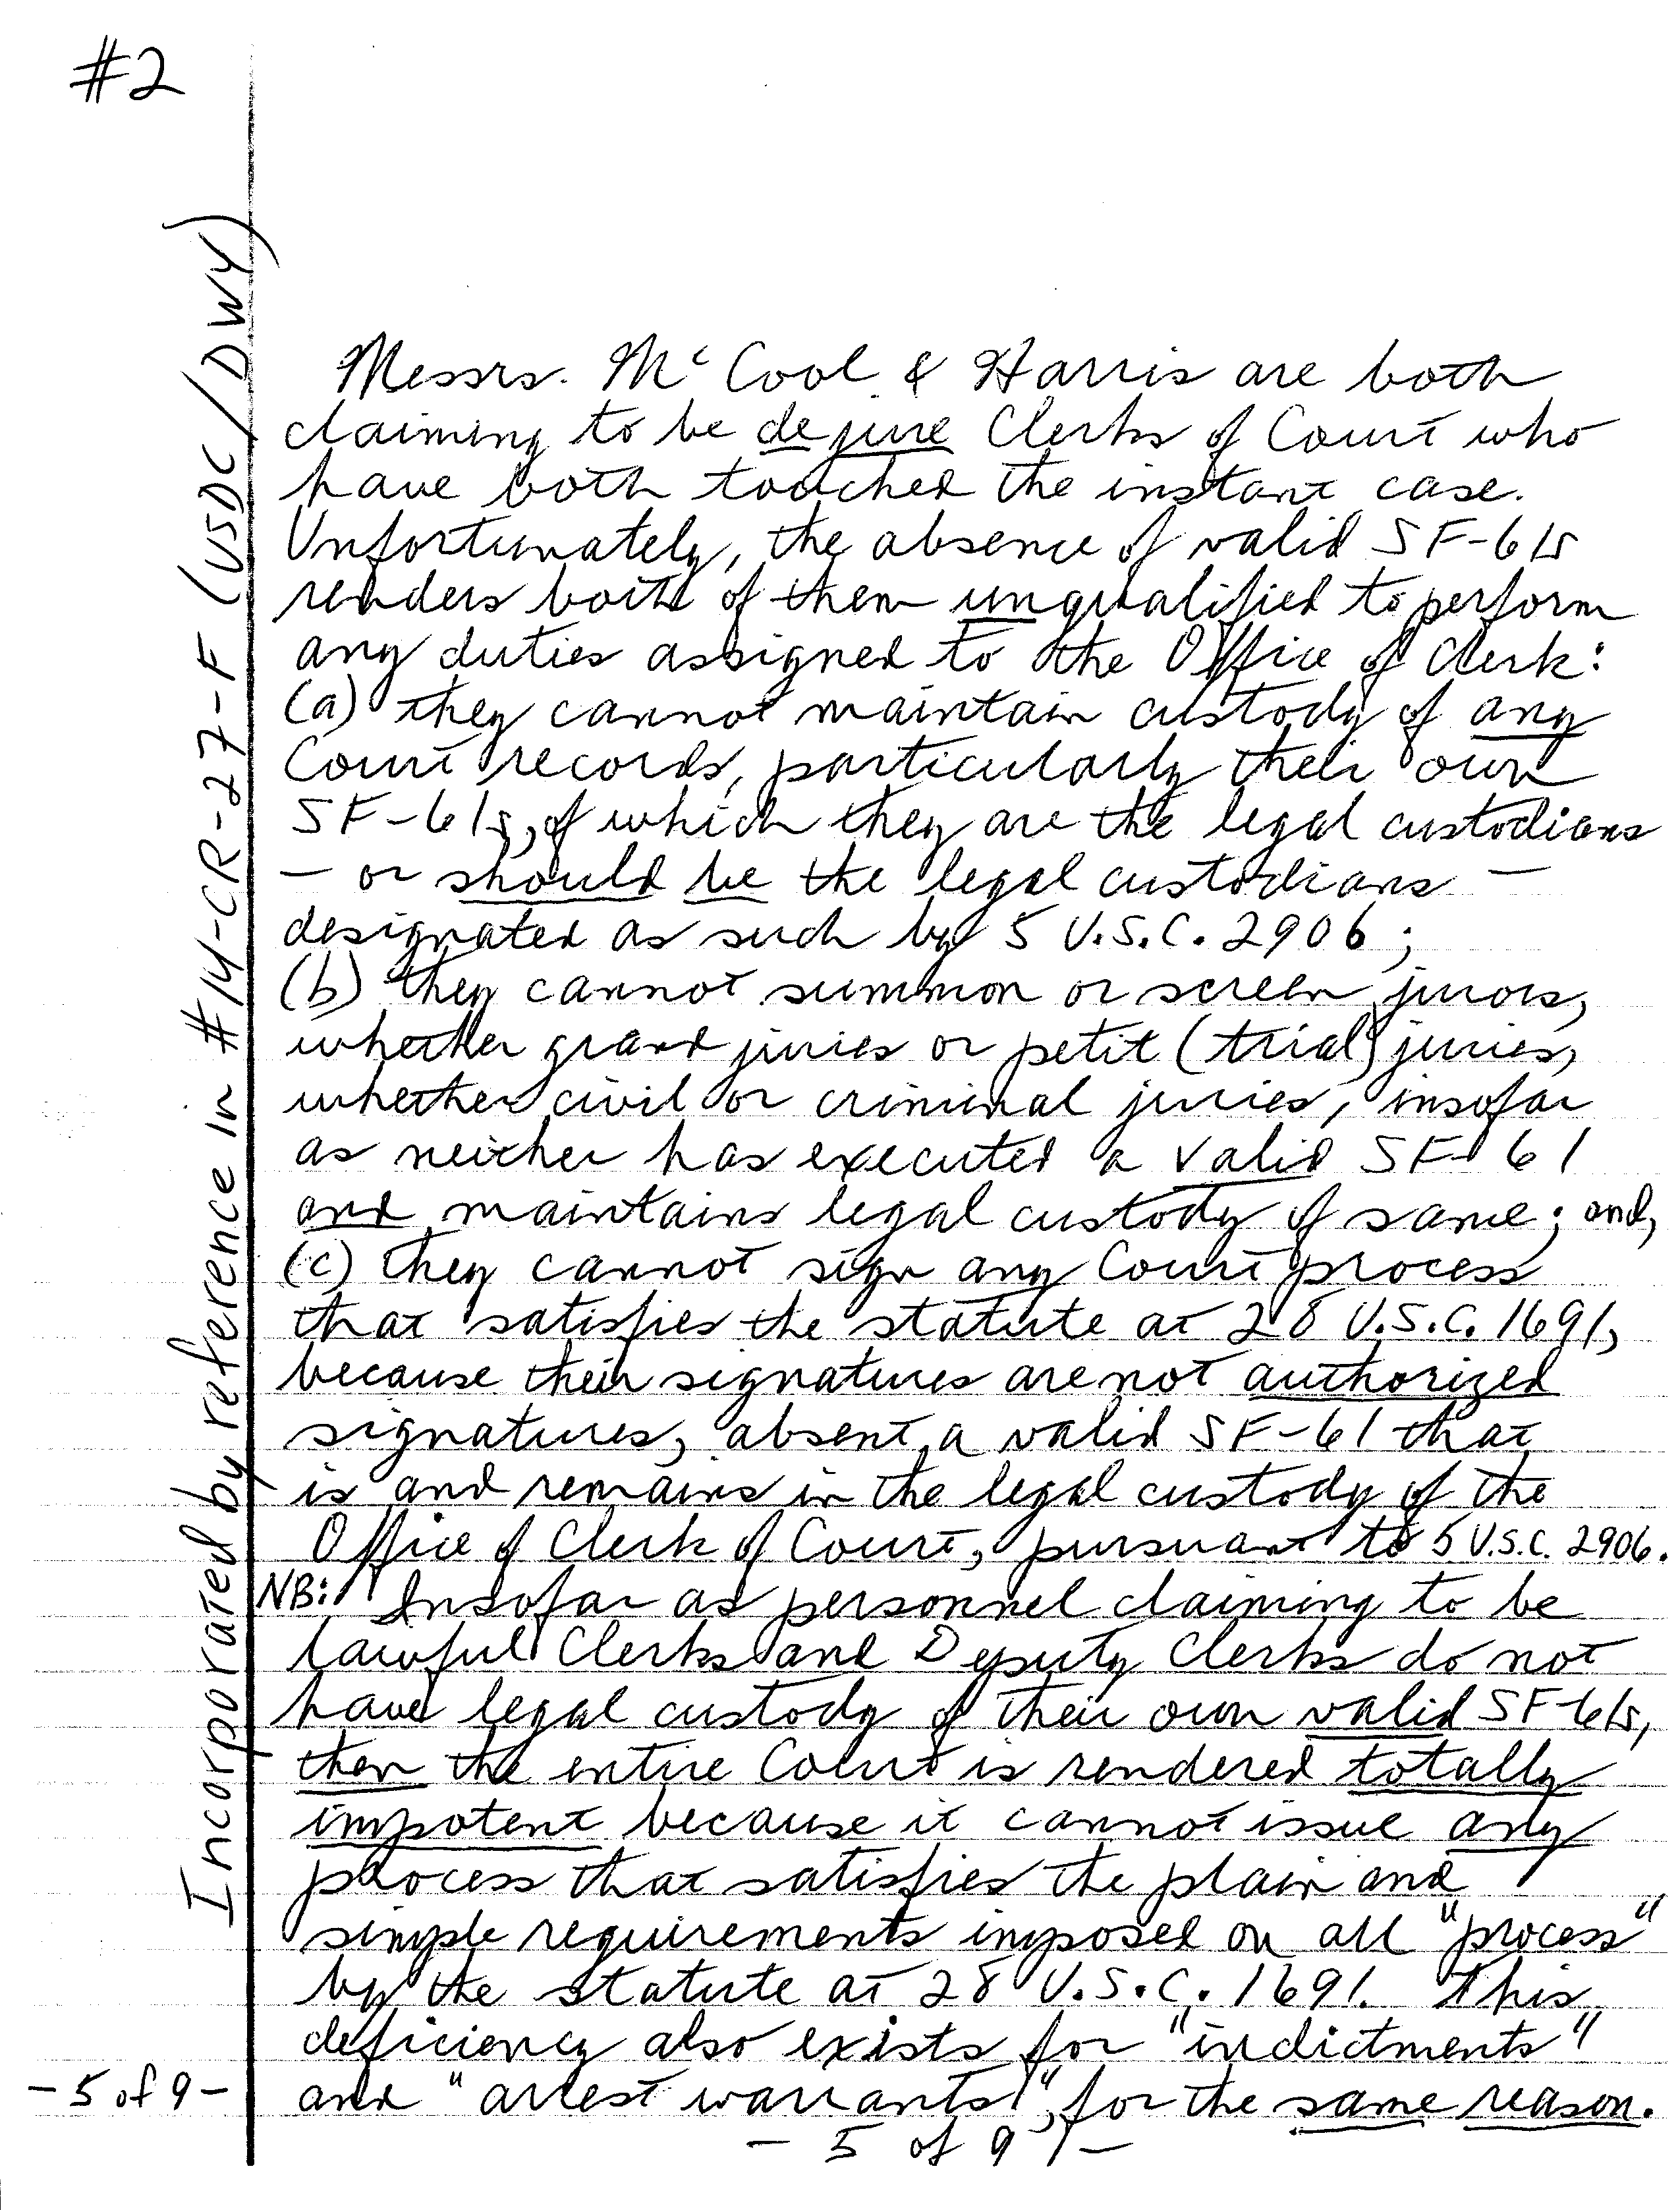 #2
Incorporated by reference in #14-CR-27-F (USDC/DWY)
Messrs. McCool & Harris are both
claiming to be de jure Clerks of Court who
have both touched the instant case.
Unfortunately, the absence of valid SF-61s
renders both of them unqualified to perform
any duties assigned to the Office of Clerk:
(a) they cannot maintain custody of any
Court records, particularly their own
SF-61s, of which they are the legal custodians
— or should be the legal custodians —
designated as such by 5 U.S.C. 2906;
(b) they cannot summon or screen jurors,
whether grand juries or petit (trial) juries,
whether civil or criminal juries, insofar
as neither has executed a valid SF-61
and maintains legal custody of same; and,
(c) they cannot sign any Court process
that satisfies the statute at 28 U.S.C. 1691,
because their signatures are not authorized
signatures, absent a valid SF-61 that
is and remains in the legal custody of the
Office of Clerk of Court, pursuant to 5 U.S.C. 2906.
NB: Insofar as personnel claiming to be
lawful Clerks and Deputy Clerks do not
have legal custody of their own valid SF-61s,
then the entire Court is rendered totally
impotent because it cannot issue any
process that satisfies the plain and
simple requirements imposed on all "process"
by the statute at 28 U.S.C. 1691. This
deficiency also exists for "indictments"
and "arrest warrants", for the same reason.
- 5 of 9 -
- 5 of 9 -